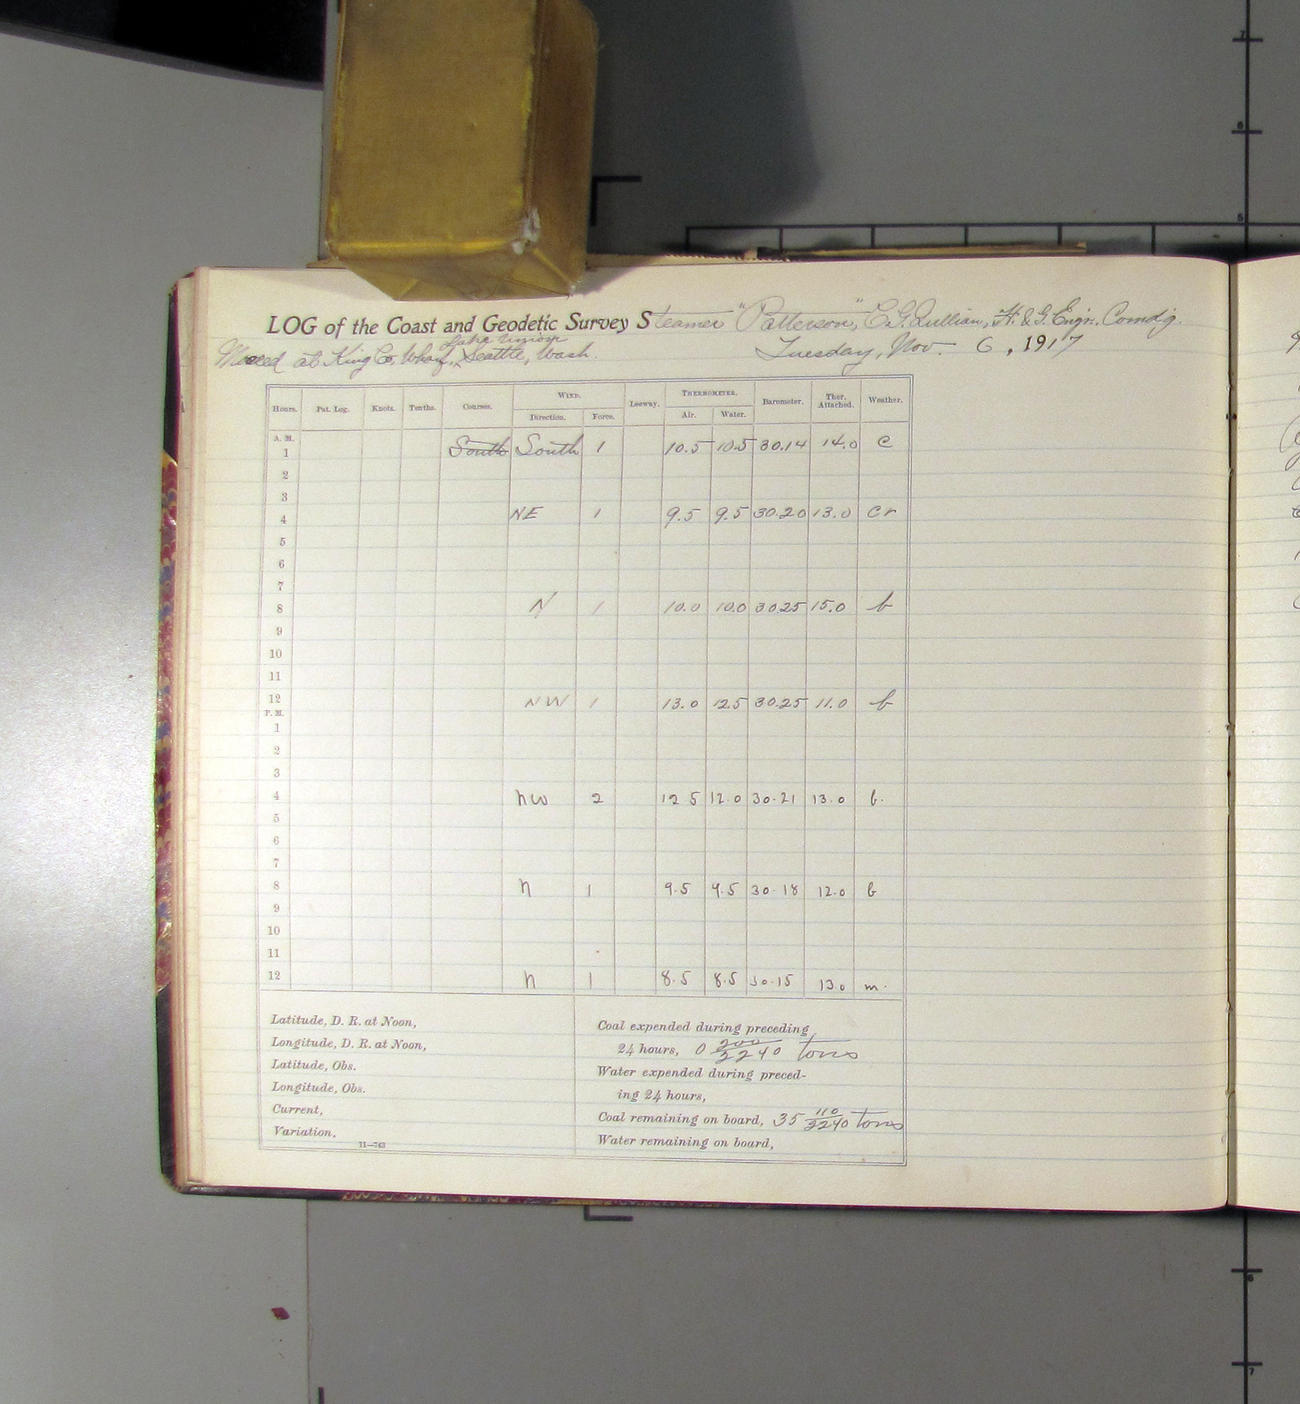 LOG of the Coast and Geodetic Survey Steamer "Patterson," C.G. Quillian, H. & G. Engr. Comdg.
Lake Union
Moored at King Co. Wharf, Seattle, Wash. Tuesday, Nov. 6, 1917
Hours. Pat. Log. Knots. Tenths. Courses. WIND. Leeway. THERMOMETER. Barometer. Ther. Attached. Weather.
Direction. Force. Air. Water.
A. M.
1 South South 1 10.5 10.5 30.14 14.0 c
2
3
4 NE 1 9.5 9.5 30.20 13.0 cr
5
6
7
8 N 1 10.0 10.0 30.25 15.0 b
9
10
11
12 NW 1 13.0 12.5 30.25 11.0 b
P. M.
1
2
3
4 NW 2 12 5 12.0 30.21 13.0 b.
5
6
7
8 N 1 9.5 9.5 30.18 12.0 b
9
10
11
12 N 1 8.5 8.5 30.15 13.0 m.
Latitude, D. R. at Noon,
Longitude, D. R. at Noon,
Latitude, Obs.
Longitude, Obs.
Current,
Variation.
11—763
Coal expended during preceding
24 hours, 0 200/2240 tons
Water expended during preced-
ing 24 hours,
Coal remaining on board, 35 110/2240 tons
Water remaining on board,